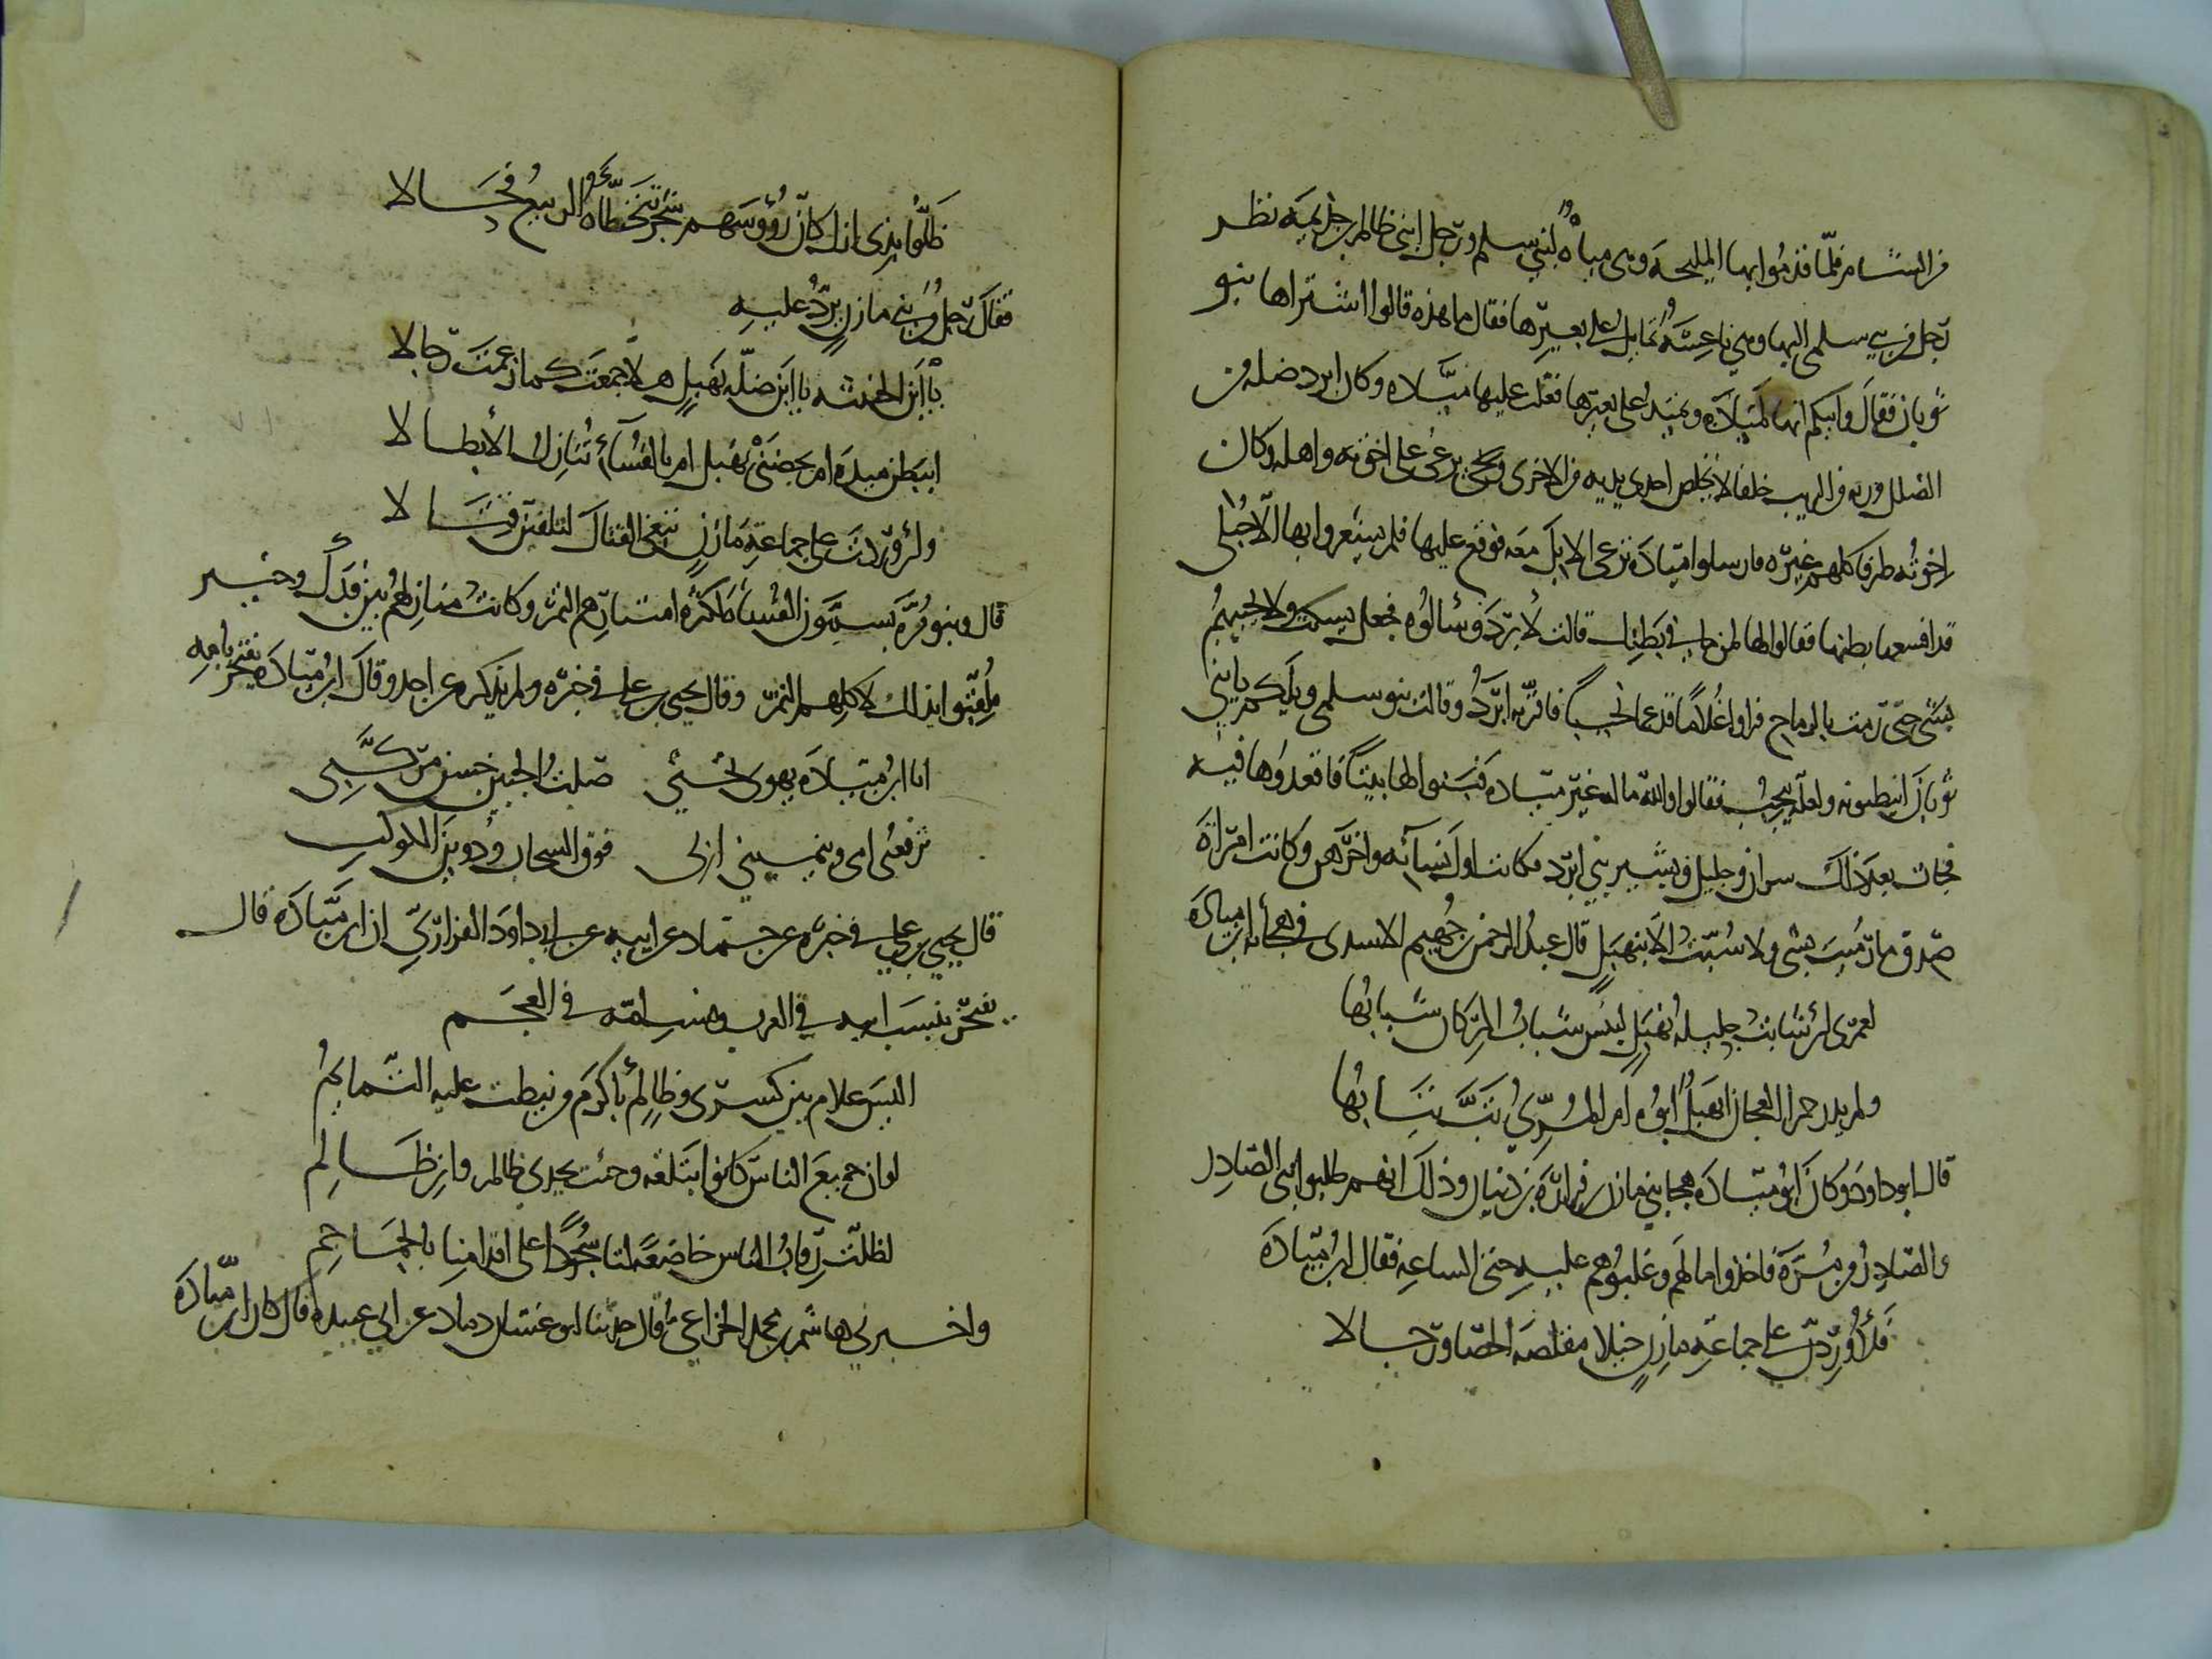 من الشام فلما قدموا بها المليحة وهي مياه لبني سلمى ورجل ابني ظالم بن جذيمة نظر
رجل من بني سلمى اليها وهي ناعسة تمايل على بعيرها فقال ما هذه قالوا اشتراها بنو
ثوبان فقال وابيكم انها لميادة تميد على بعيرها فغلب عليها ميادة وكان ابرد ضلة من
الضلل ورثة من الرثث جلفا لا تخلص احدى يديه من الاخرى يرعى على اخوته واهله وكان
اخوته ظرفا كلهم غيره فارسلوا ميادة ترعى الابل معه فوقع عليها فلم يشعروا بها الا حبلى
قد اقعسها بطنها فقالوا لها لمن ما في بطنك قالت لابرد وسالوه فجعل يسكت ولا يجيبهم
بشي حتى رمت بالرماح فراوا غلاما فدغما نجيبا فاقر به ابرد وقالت بنو سلمى ويلكم يا بني
ثوبان ابتطنوه ولعله ينجب فقالوا والله ما له غير ميادة فبنوا لها بيتا فاقعدوها فيه
فجات بعد ذلك بثوبان وخليل وبشير بني ابرد فكانت اول نسائه واخرهن وكانت امراة
صدق ما رميت بشي ولا سبت الا بنهبل قال عبد الرحمن بن جهيم الاسدي في هجائه ابن ميادة
لعمري لئن شابت حليلة نهبل لبئس شباب المرء كان شبابها
ولم يدر حمرا العجان انهبل ابوه ام المري تب تبابها
قال ابو داود وكان ابن ميادة هجا بني مازن وفزارة بن ذبيان وذلك انهم ظلموا بني الصادر
والصادر من مرة فاخذوا مالهم وغلبوهم عليه حتى الساعة فقال ابن ميادة
فلاوردن على جماعة مازن خيلا مقلصة الخصا ورجالا
ظلوا بذي ارك كان رؤوسهم شجر تخطاه الربيع فحالا
فقال رجل من بني مازن يرد عليه
يا ابن الخبيثه يا ابن ضلة نهبل هلا جمعت كما زعمت رجالا
اببظر ميدة ام بخصيي نهبل ام بالفساة تنازل الابطالا
ولئن وردت على جماعة مازن تبغي القتال لتلقين قتالا
قال وبنو مرة يسمون الفساة لكثرة امتيارهم التمر وكانت منازلهم بين فدك وخيبر
فلقبوا بذلك لاكلهم التمر وقال يحيى بن علي في خبره ولم يذكره عن احد وقال ابن ميادة يفخر بامه
انا ابن ميادة يهوي نجبي صلت الجبين حسن مركبي
ترفعني امي وينميني ابي فوق السحاب ودوين الكوكب
قال يحيى بن علي في خبره عن حماد عن ابيه عن ابي داود الفزاري ان ابن ميادة قال
يفخر بنسب ابيه في العرب ونسب امه في العجم
اليس غلام بين كسرى وظالم باكرم من نيطت عليه التمايم
لو ان جميع الناس كانوا بتلعة وجئت بجدي ظالم وابن ظالم
لظلت رقاب الناس خاضعة لنا سجودا على اقدامنا بالجماجم
واخبرني هاشم بن محمد الخزاعي قال حدثنا ابو غسان دماد عن ابي عبيدة قال كان ابن ميادة